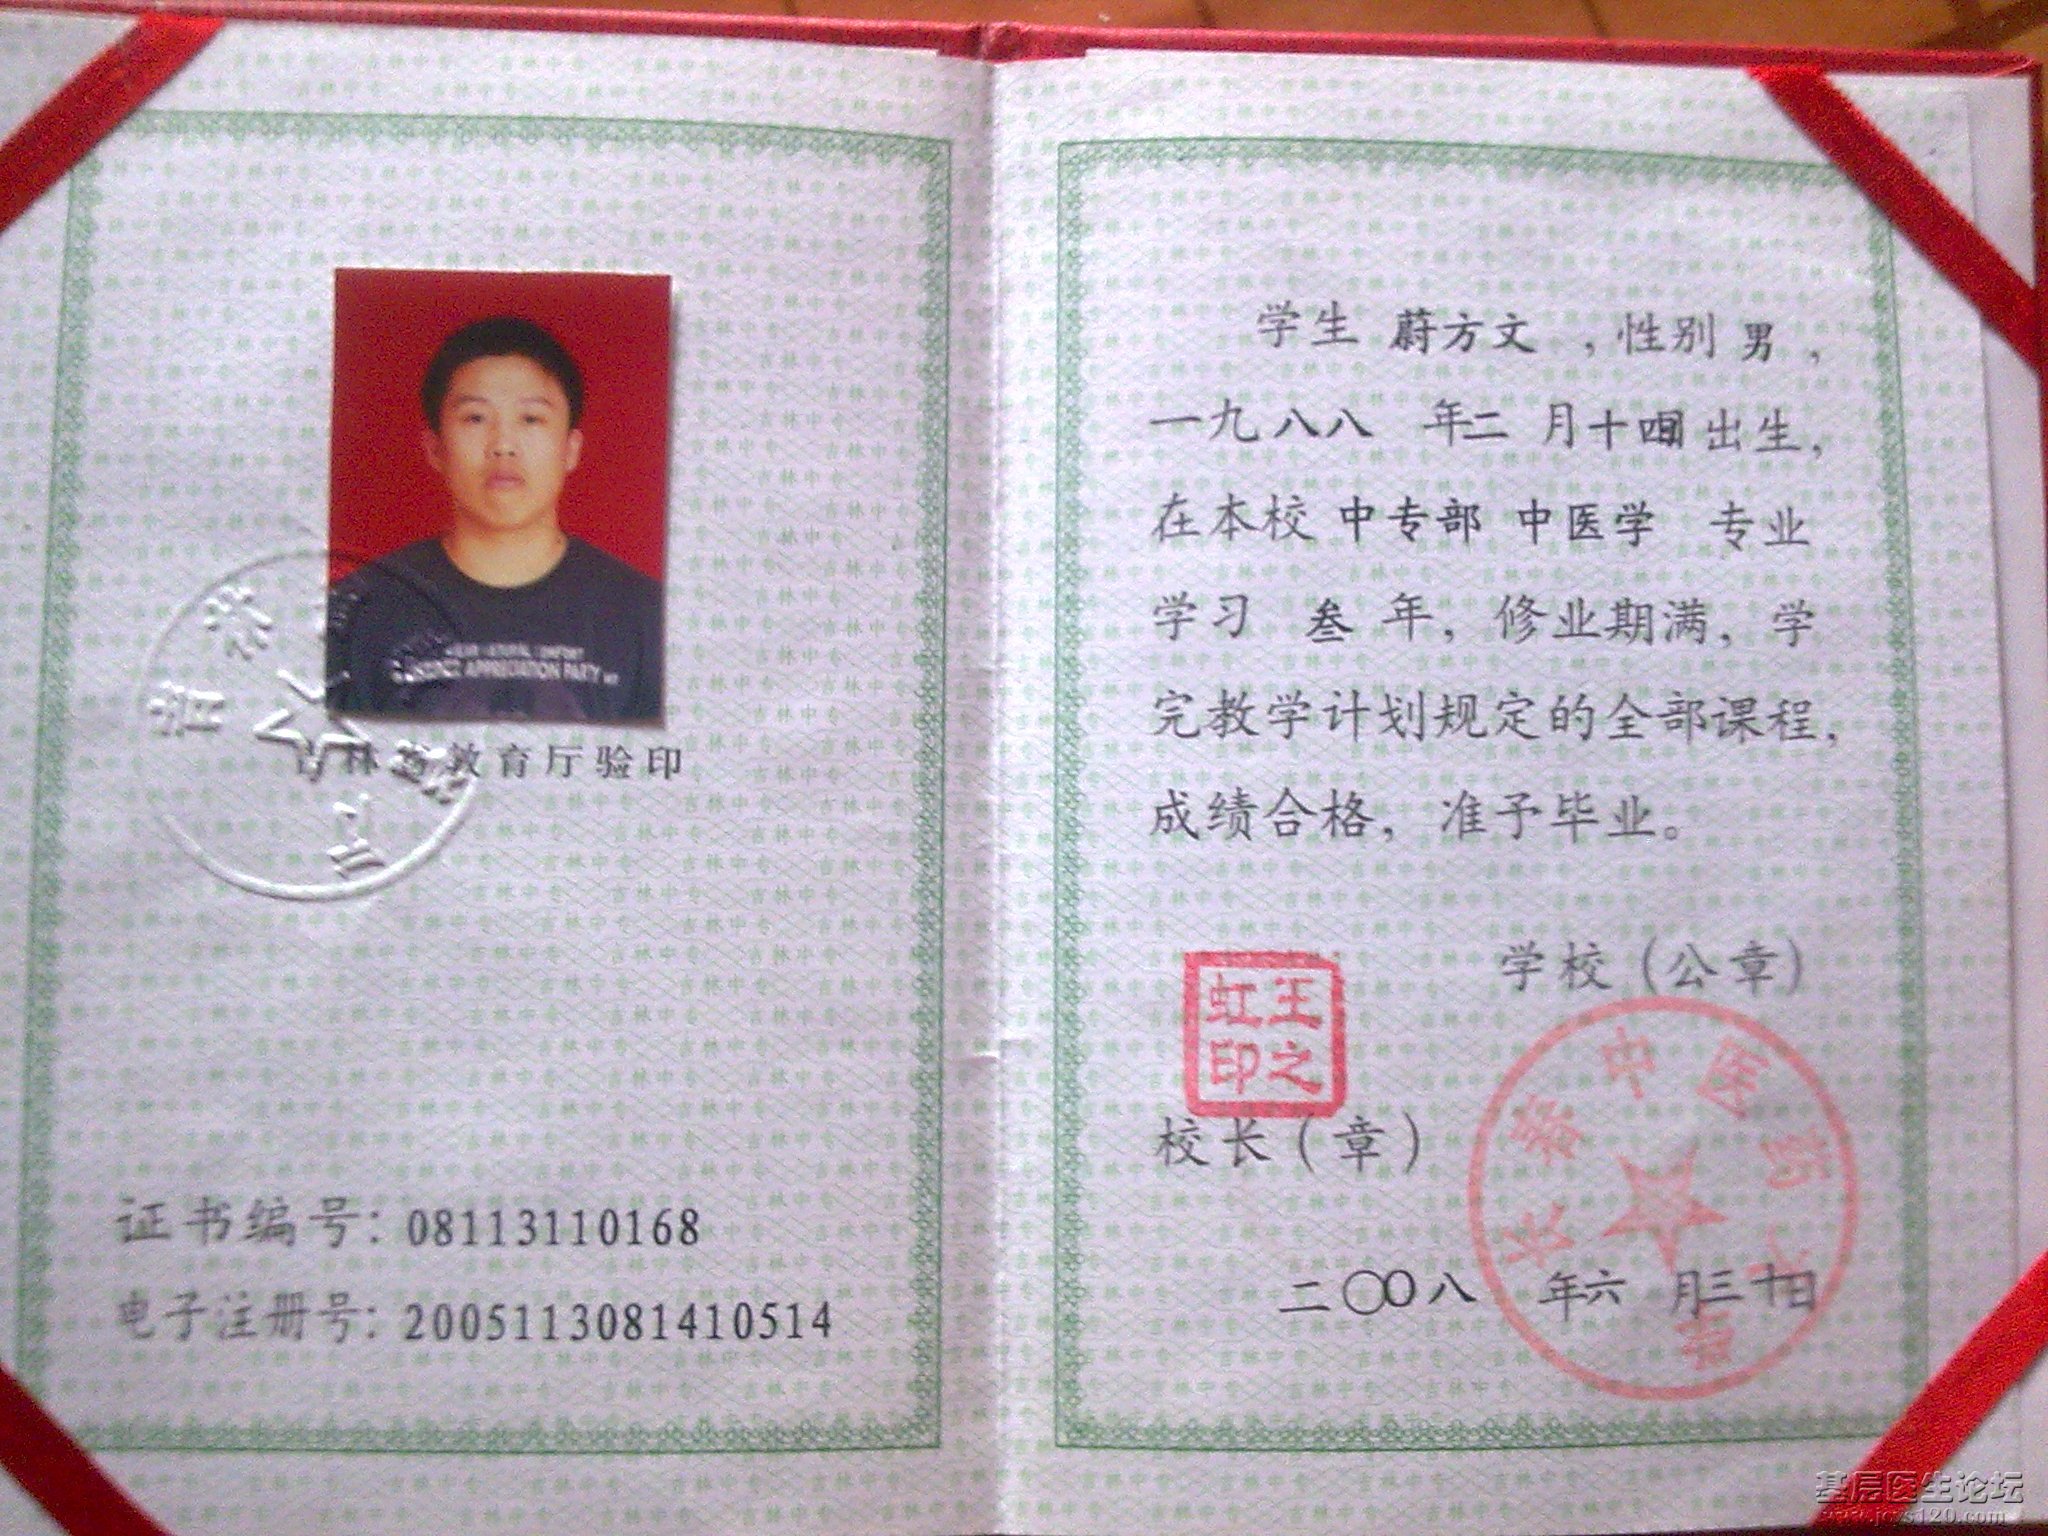 吉林省教育厅验印
证书编号：08113110168
电子注册号：2005113081410514
学生 蔚方文 ，性别 男 ，
一九八八 年二 月十四日出生，
在本校 中专部 中医学 专业
学习 叁 年，修业期满，学
完教学计划规定的全部课程，
成绩合格，准予毕业。
学校（公章）
王之虹印
校长（章）
长春中医药大学
二〇〇八 年六 月三十日
基层医生论坛